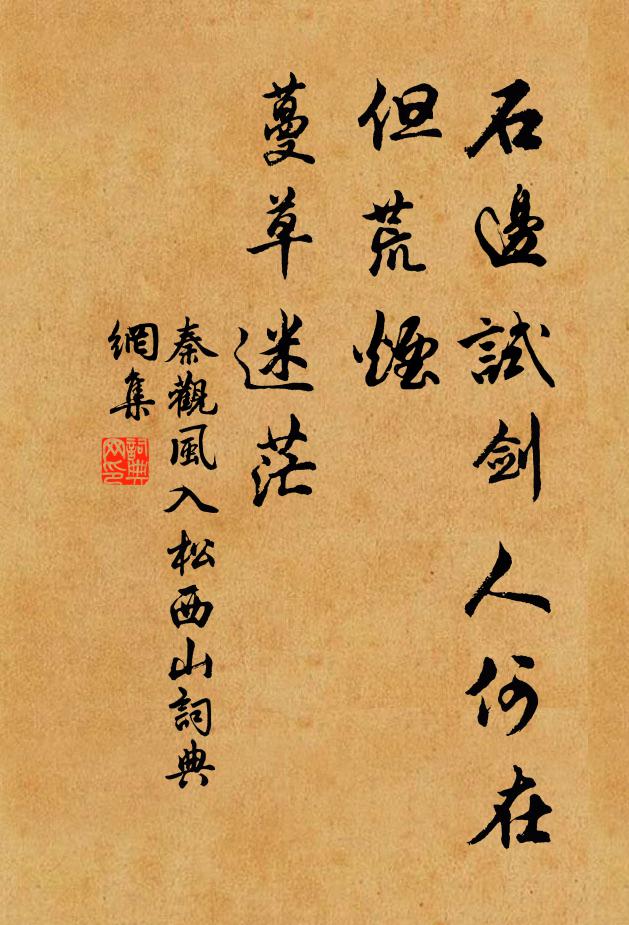 石邊試劍人何在
但荒煙
蔓草迷茫
秦觀風入松西山詞典
網集
詞典网印